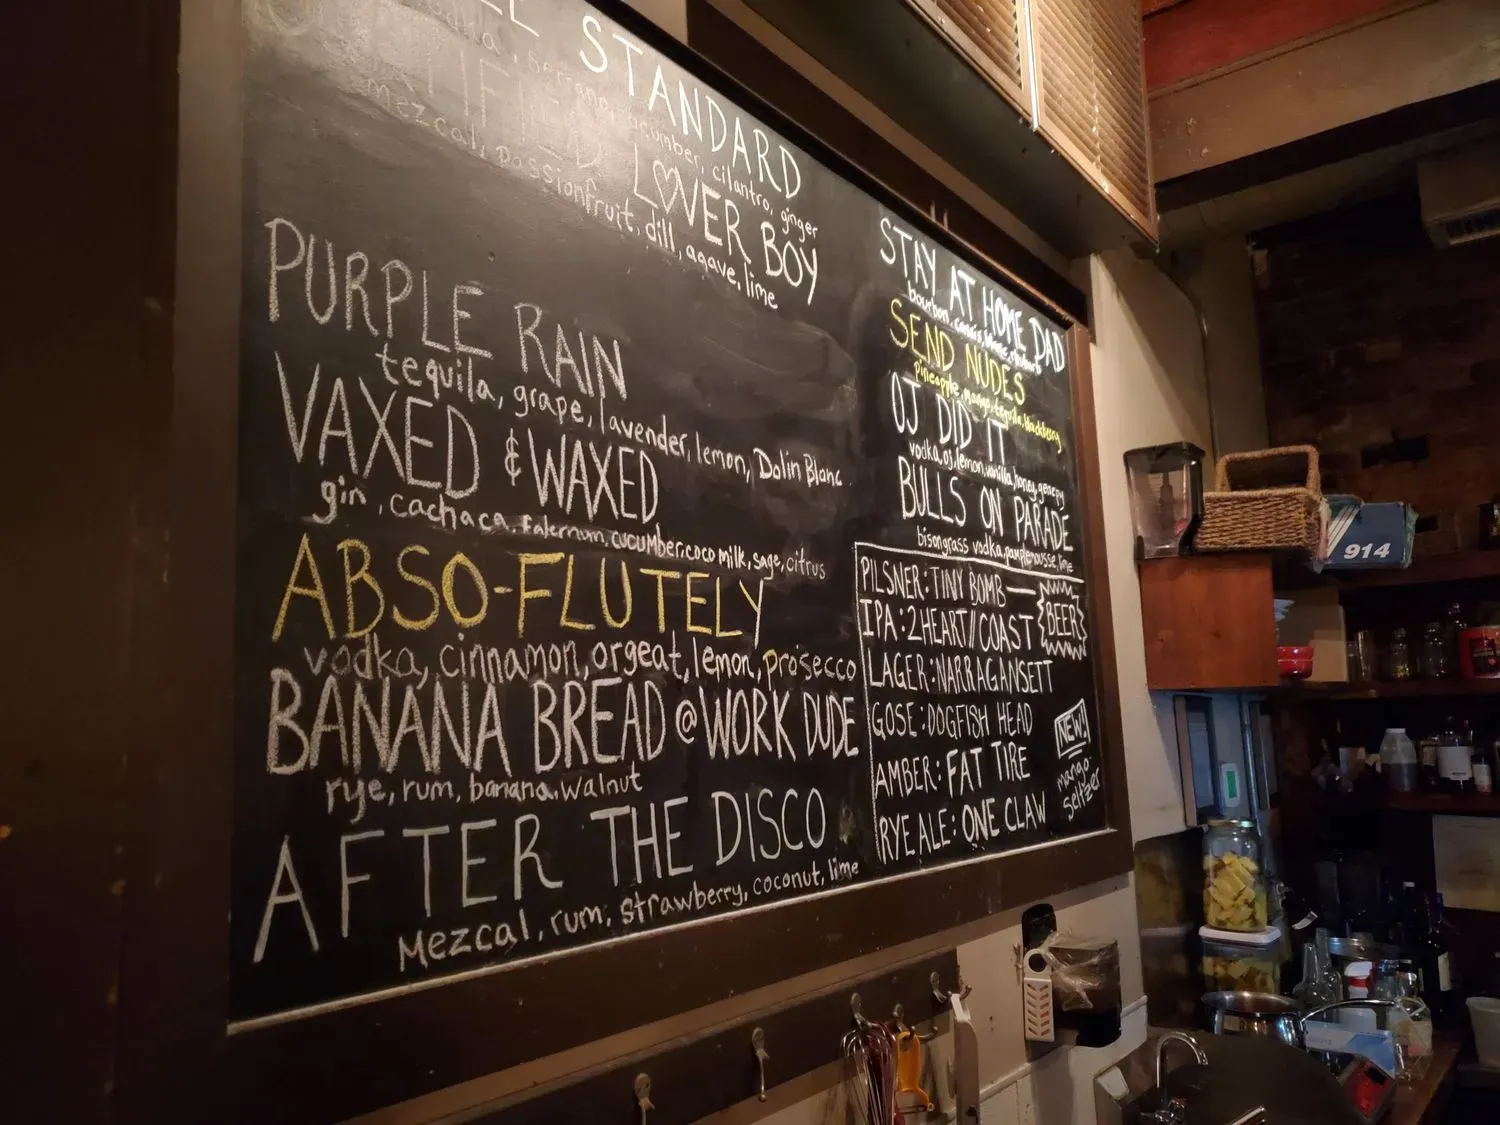 STANDARD
cucumber, cilantro, ginger
LOVER BOY
mezcal, passionfruit, dill, agave, lime
PURPLE RAIN
tequila, grape, lavender, lemon, Dolin Blanc
VAXED & WAXED
gin, cachaca, falernum, cucumber, coco milk, sage, citrus
ABSO-FLUTELY
vodka, cinnamon, orgeat, lemon, prosecco
BANANA BREAD @ WORK DUDE
rye, rum, banana, walnut
AFTER THE DISCO
Mezcal, rum, strawberry, coconut, lime
STAY AT HOME DAD
bourbon,
SEND NUDES
pineapple, mango, tequila, blackberry
OJ DID IT
vodka, oj, lemon, vanilla, honey, genepy
BULLS ON PARADE
bisongrass vodka, pamplemousse, lime
PILSNER: TINY BOMB
BEER
IPA: 2HEART//COAST
LAGER: NARRAGANSETT
GOSE: DOGFISH HEAD
AMBER: FAT TIRE
RYE ALE: ONE CLAW
NEW!
mango
seltzer
914